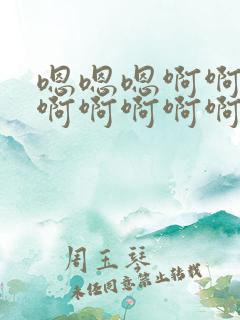 嗯嗯嗯啊啊
啊啊啊啊啊
周玉琴
未经同意禁止转载